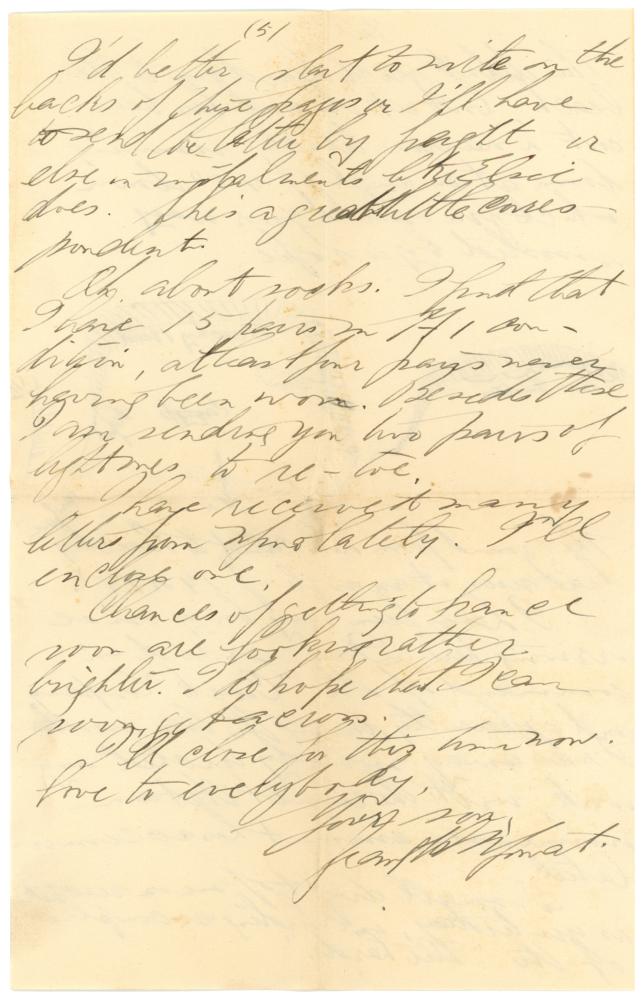 (5)
I'd better start to write on the
backs of these pages or I'll have
to send the letter by freight or
else in instalments like Elsie
does. She's a great little corres-
pondent.
Oh, about socks. I find that
I have 15 pairs in A1 con-
dition, at least four pairs never
having been worn. Besides these
I am sending you two pairs of
light ones to re-toe.
I have received many
letters from lately. I'll
enclose one.
Chances of getting to France
soon are looking rather
brighter. I do hope that I can
soon get across.
I'll close for this time now.
Love to everybody,
Your son,